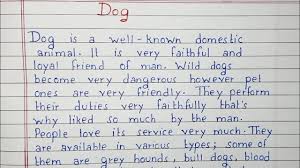 Dog
Dog is a well-known domestic
animal. It is very faithful and
loyal friend of man. Wild dogs
become very dangerous however pet
ones are very friendly. They perform
their duties very faithfully that's
why liked so much by the man.
People love its service very much. They
are available in various types; some
of them are grey hounds, bull dogs, blood